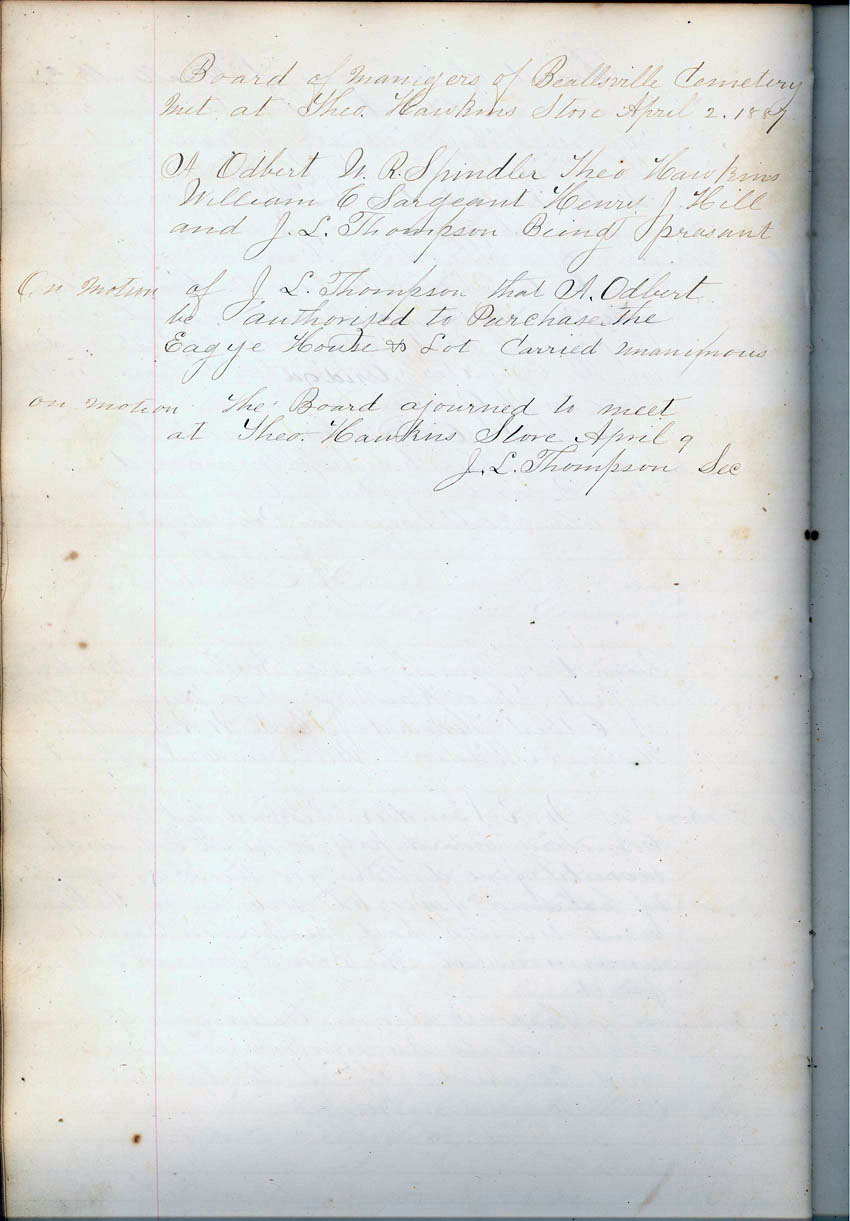 Board of Manigers of Beallsville Cemetery
Met at Theo. Hawkins Store April 2. 1887
A Odbert W. R. Spindler Theo Hawkins
William C Sargeant Henry J. Hill
and J. L. Thompson Being prasant
On Motion of J L. Thompson that A. Odbert
be authorised to Purchase the
Eagye House & Lot Carried unanimous
on motion the Board ajourned to meet
at Theo. Hawkins Store April 9
J. L. Thompson Sec